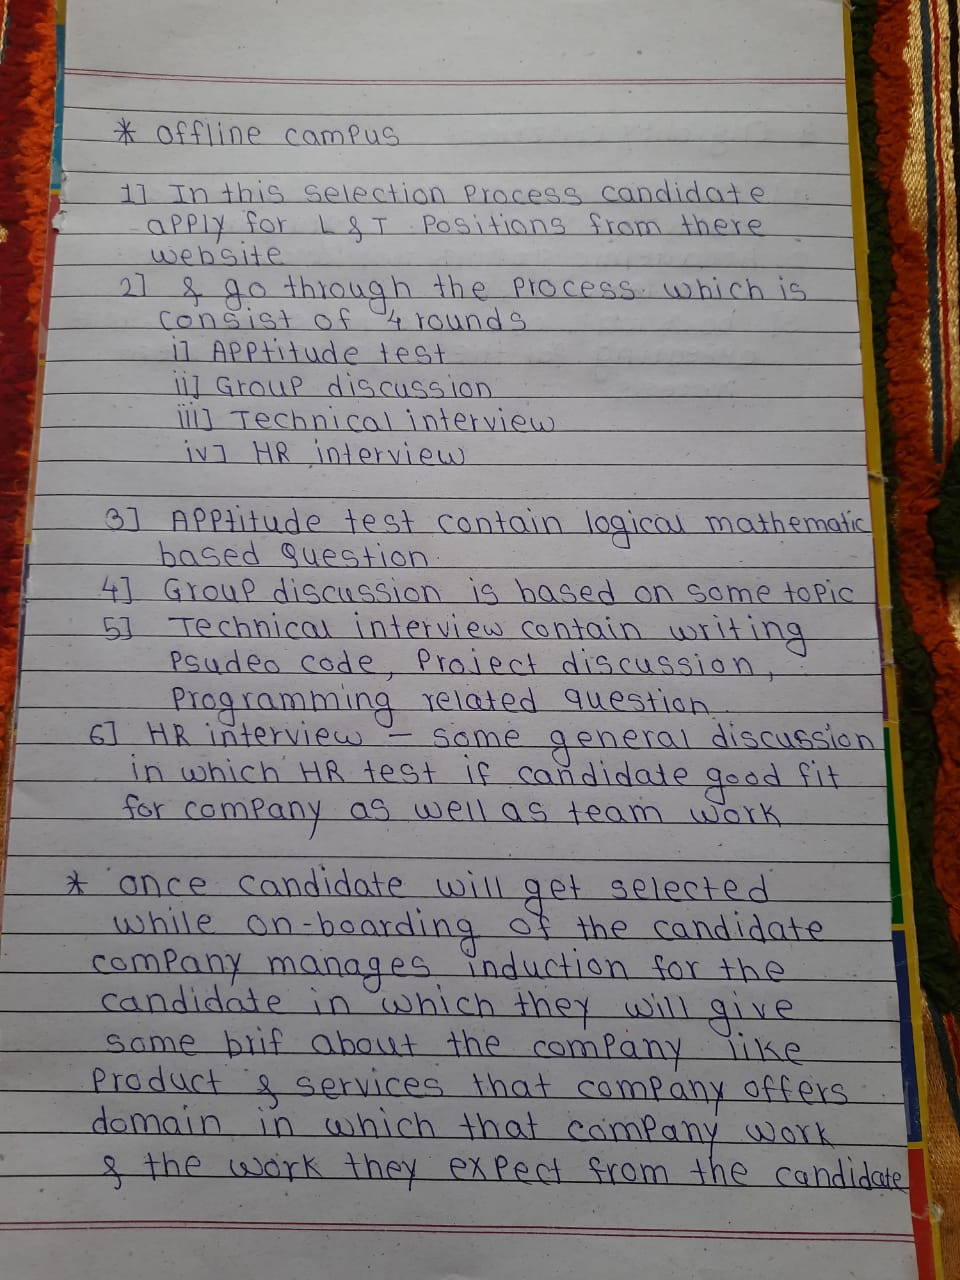 * offline campus
1] In this selection Process candidate
apply for L & T Positions from there
website
2] & go through the process which is
consist of 4 rounds
i] Apptitude test
ii] Group discussion
iii] Technical interview
iv] HR interview
3] Apptitude test contain logical mathematic
based question.
4] Group discussion is based on some topic
5] Technical interview contain writing
Psudeo code, Project discussion,
Programming related question.
6] HR interview – some general discussion
in which HR test if candidate good fit
for company as well as team work
* once candidate will get selected
while on-boarding of the candidate
company manages induction for the
candidate in which they will give
some brif about the company like
Product & services that company offers
domain in which that company work
& the work they expect from the candidate